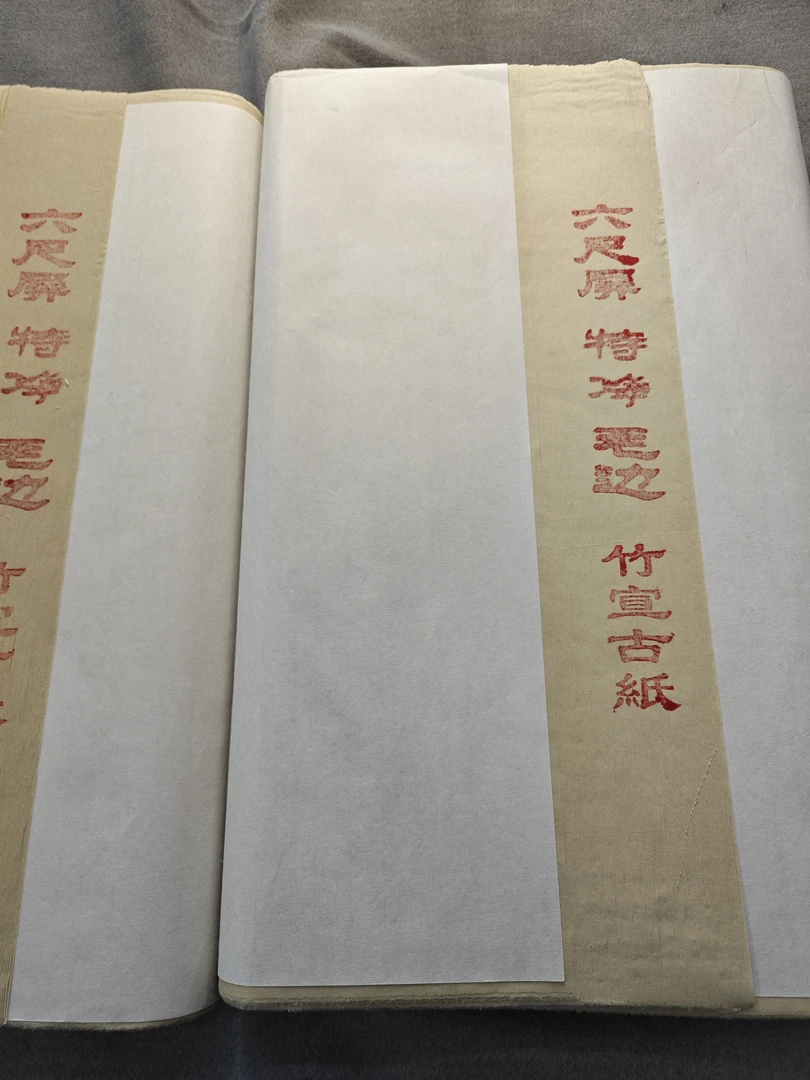 六尺屏 特净 毛边 竹宣古紙
六尺屏 特净 毛边